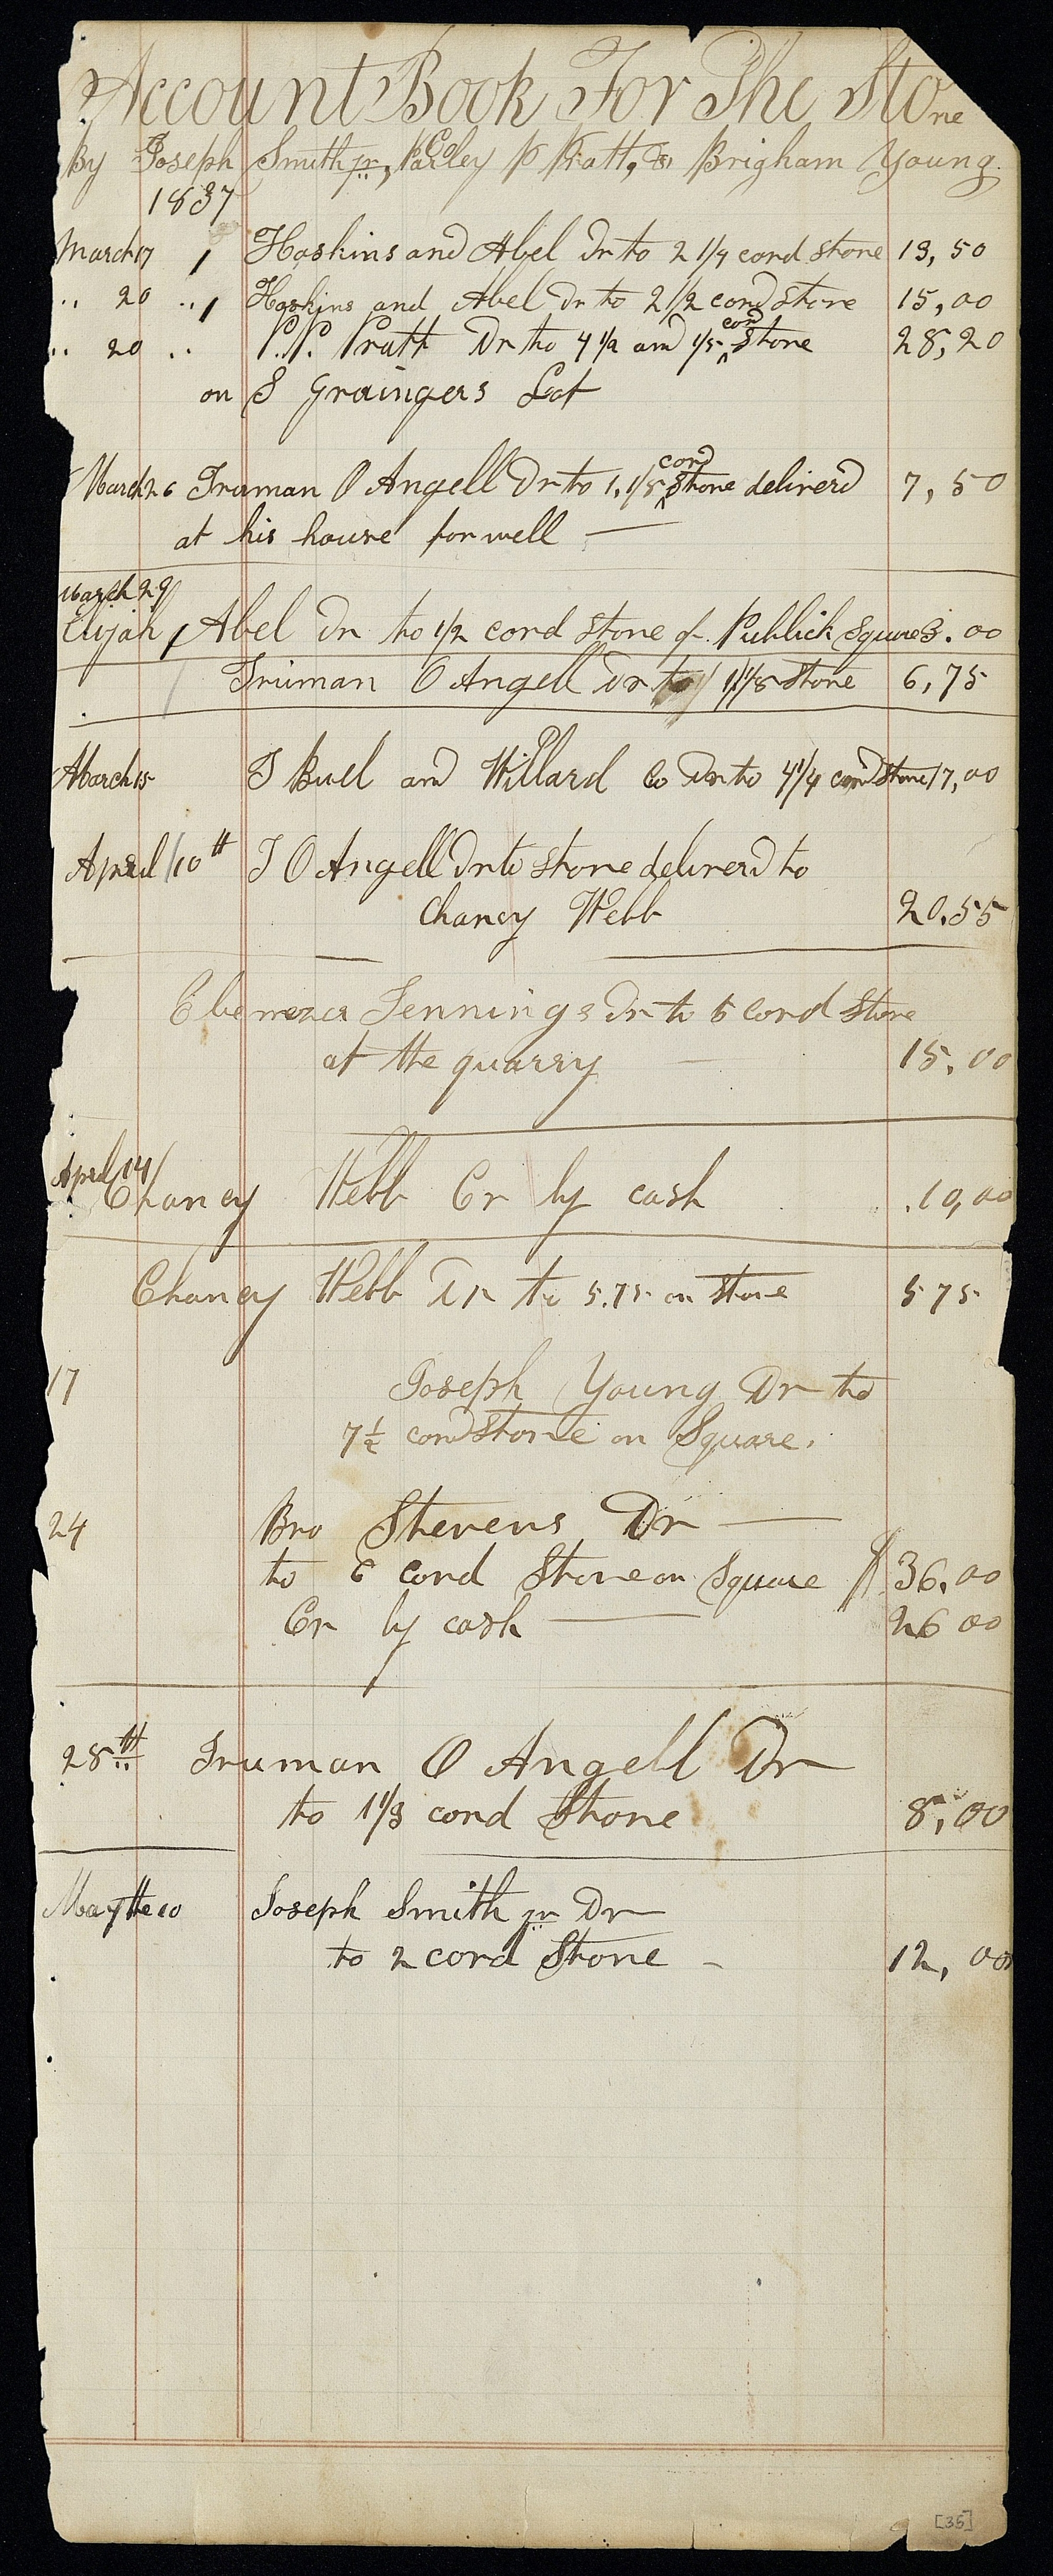 Account Book For The Stone
By Joseph Smith jr, Parley P Pratt, & Co Brigham Young.
1837
March 17 Hoskins and Abel Dr to 2 1/4 cord stone 13,50
" 20 " Hoskins and Abel Dr to 2 1/2 cord stone 15,00
" 20 " P. P. Pratt Dr to 4 1/2 and 1/5 cord stone 28,20
on S Graingers Lot
March 26 Truman O Angell Dr to 1,1/8 cord stone deliverd 7,50
at his house for well —
March 29
Elijah Abel Dr to 1/2 cord stone of Publick Square 3.00
Truman O Angell Dr to 1 1/8 stone 6,75
March 15 T Buel and Willard Co Dr to 4 1/4 cord stone 17,00
April 10th T O Angell Dr to stone deliverd to
Chancy Webb 20.55
Ebenezer Jennings Dr to 5 Cord Stone
at the quarry 15.00
April 14
Chancy Webb Cr by cash 10,00
Chancy Webb Dr to 5.75 on stone 5 75
17 Joseph Young Dr to
7 1/2 cord stone on Square.
24 Bro Stevens Dr —
to 6 cord Stone on Square $ 36.00
Cr by cash — 26 00
28th Truman O Angell Dr
to 1 1/3 cord Stone 8,00
May the 10 Joseph Smith jr Dr
to 2 cord Stone - 12,00
[35]